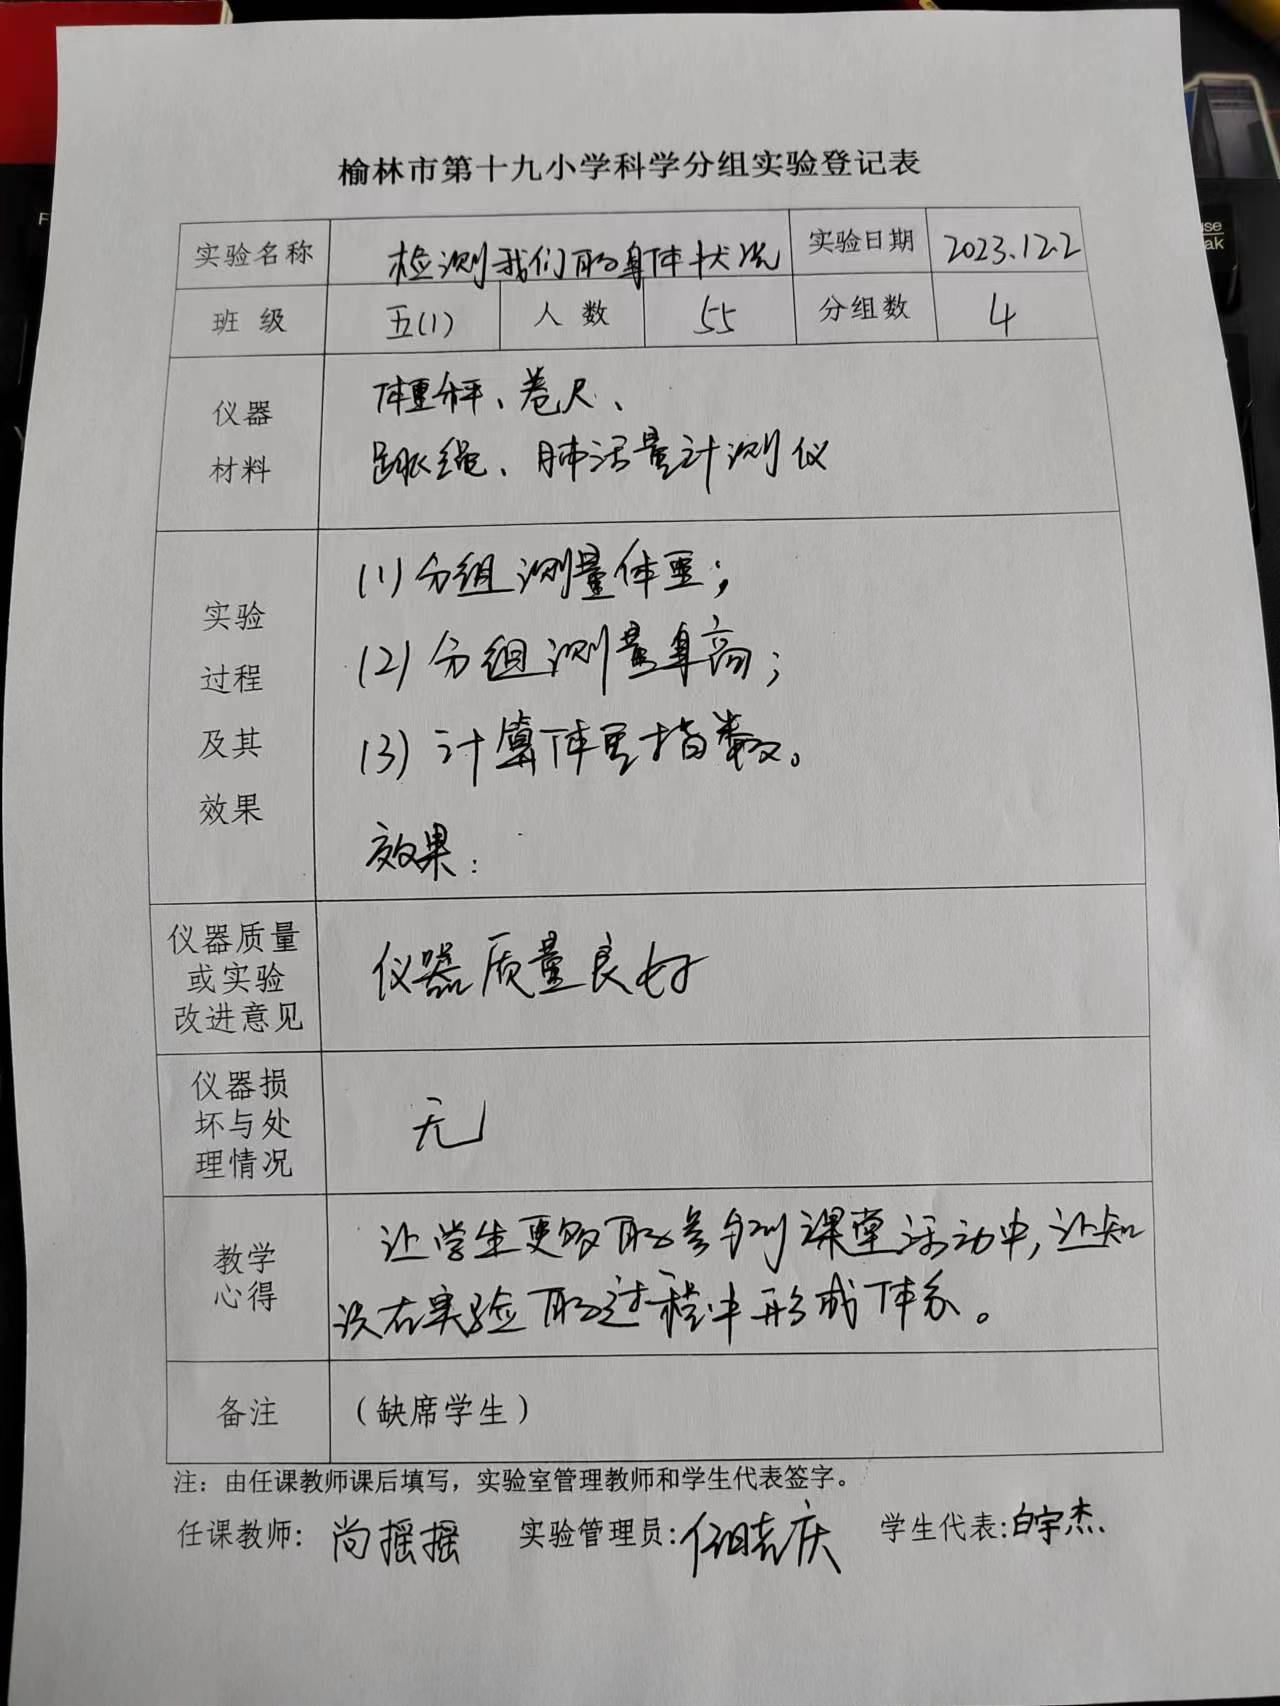 榆林市第十九小学科学分组实验登记表
实验名称 检测我们的身体状况 实验日期 2023.12.2
班 级 五(1) 人 数 55 分组数 4
仪器
材料
体重秤、卷尺、
跳绳、肺活量计测仪
实验
过程
及其
效果
(1)分组测量体重;
(2)分组测量身高;
(3)计算体重指数。
效果:
仪器质量
或实验
改进意见
仪器质量良好
仪器损
坏与处
理情况
无
教学
心得
让学生更多的参与到课堂活动中,让知
识在实验的过程中形成体系。
备注 (缺席学生)
注:由任课教师课后填写,实验室管理教师和学生代表签字。
任课教师: 尚摇摇 实验管理员: 学生代表:白宇杰